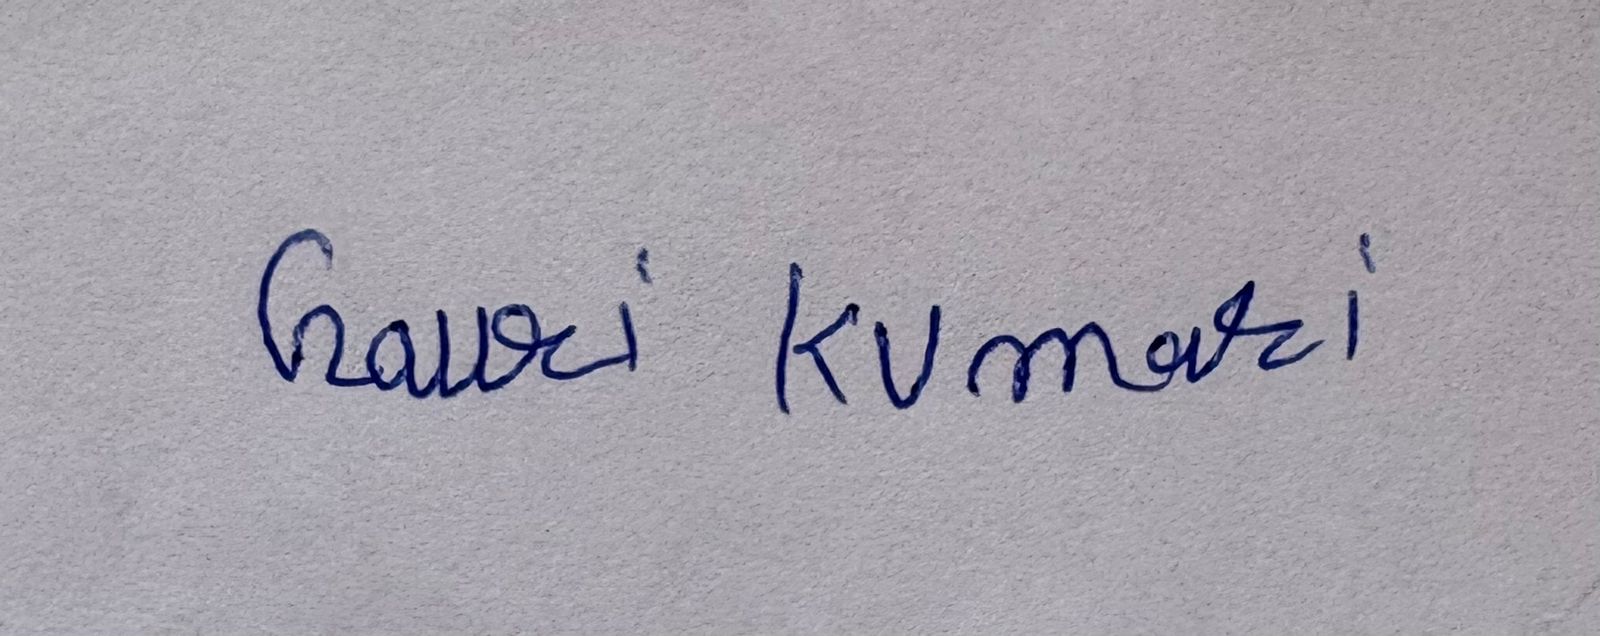 Gauri Kumari